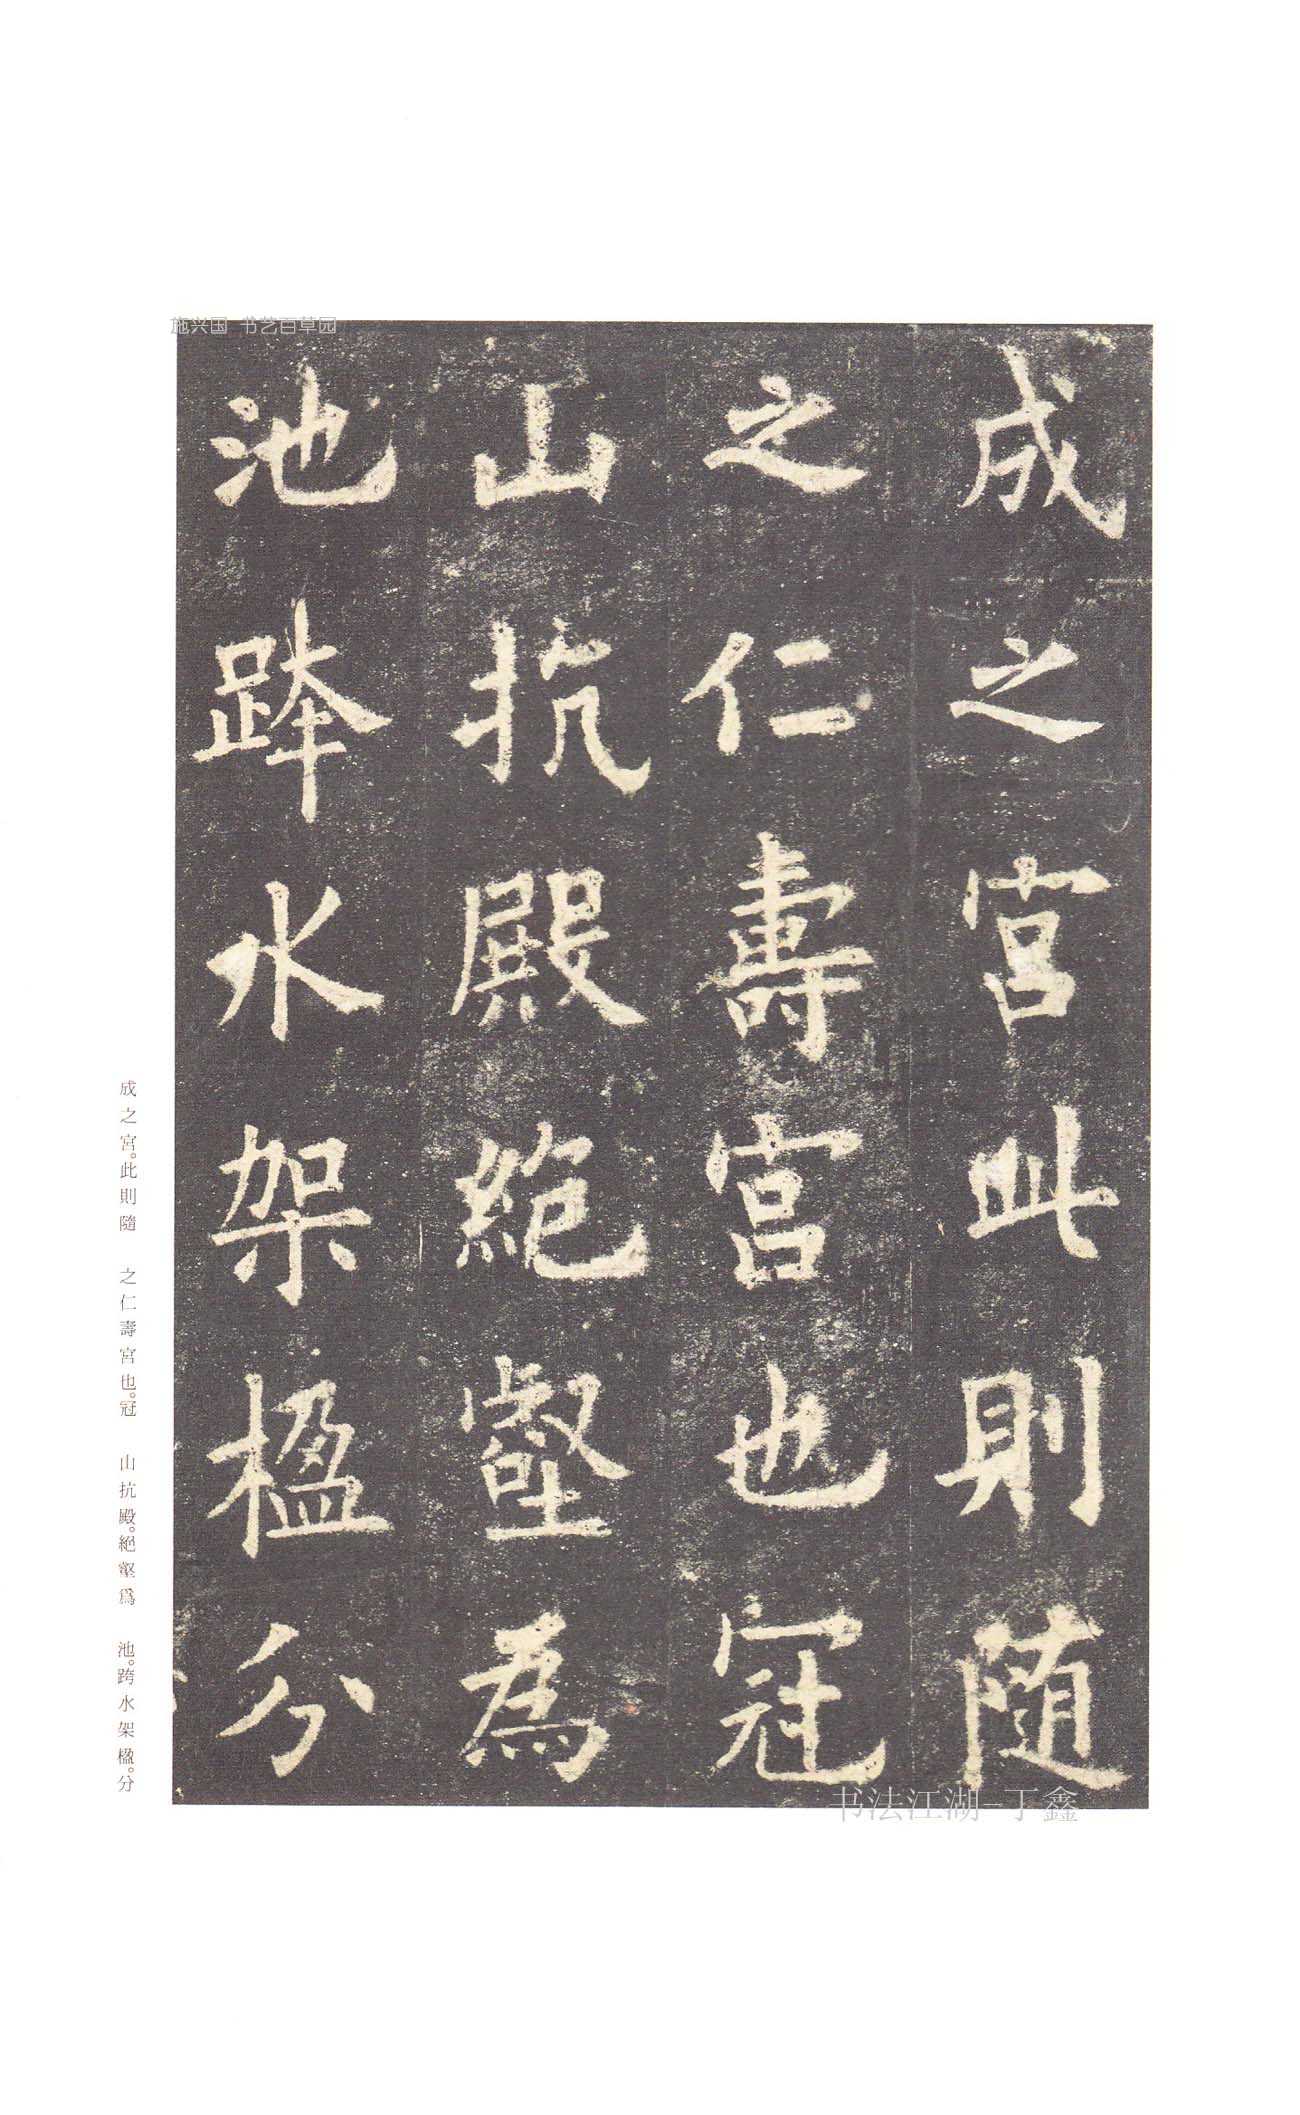 施兴国 书艺百草园
成之宮此則随
之仁壽宮也冠
山抗殿絶壑為
池跨水架楹分
成之宮。此則隨 之仁壽宮也。冠 山抗殿。絕壑爲 池。跨水架楹。分
书法江湖-丁鑫